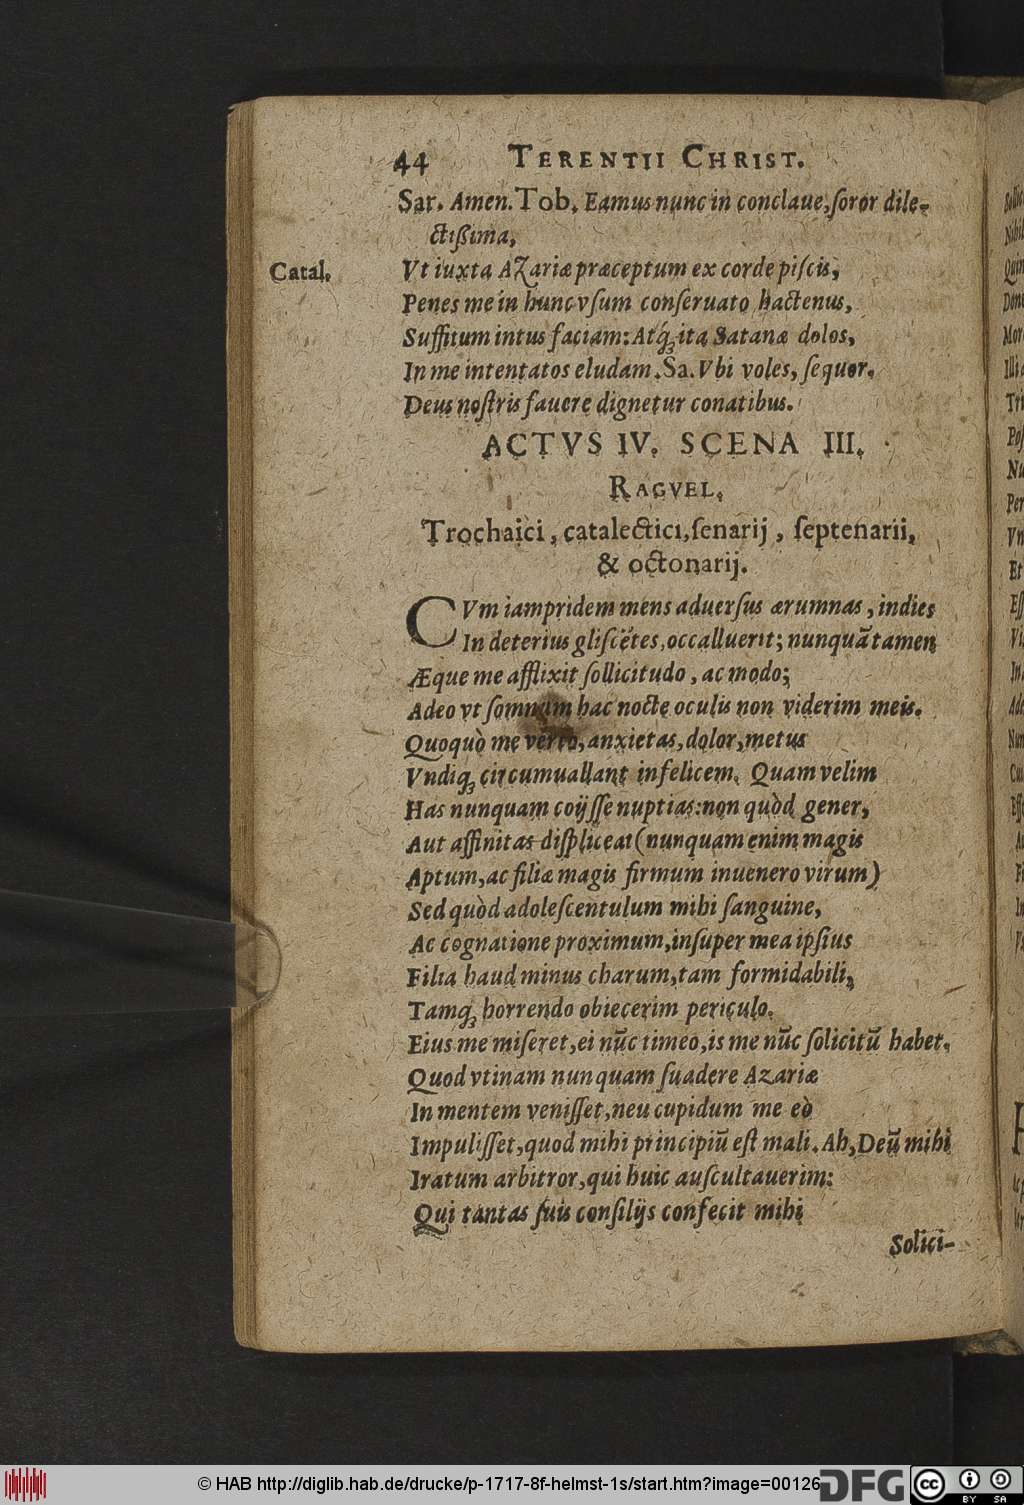 44 TERENTII CHRIST.
Sar. Amen. Tob. Eamus nunc in conclaue, ſoror dile-
ctißima,
Catal. Vt iuxta Azariæ præceptum ex corde piſcis,
Penes me in hunc vſum conſeruato hactenus,
Suffitum intus faciam: Atq́ꝫ ita Satanæ dolos,
In me intentatos eludam. Sa. Vbi voles, ſequor.
Deus noſtris fauere dignetur conatibus.
ACTVS IV. SCENA III.
RAGVEL.
Trochaici, catalectici, ſenarij, ſeptenarii,
& octonarij.
CVm iampridem mens aduerſus ærumnas, indies
In deterius gliſcẽtes, occalluerit; nunquã tamen
Æque me afflixit ſollicitudo, ac modo;
Adeo vt ſomnum hac nocte oculis non viderim meis.
Quoquò me verto, anxietas, dolor, metus
Vndiqꝫ circumuallant infelicem. Quam velim
Has nunquam coijſſe nuptias: non quòd gener,
Aut affinitas diſpliceat (nunquam enim magis
Aptum, ac filiæ magis firmum inuenero virum)
Sed quòd adoleſcentulum mihi ſanguine,
Ac cognatione proximum, inſuper mea ipſius
Filia haud minus charum, tam formidabili,
Tamqꝫ horrendo obiecerim periculo.
Eius me miſeret, ei nũc timeo, is me nũc ſolicitũ habet.
Quod vtinam nunquam ſuadere Azariæ
In mentem veniſſet, neu cupidum me eò
Impuliſſet, quod mihi principiũ eſt mali. Ah, Deũ mihi
Iratum arbitror, qui huic auſcultauerim:
Qui tantas ſuis conſilijs confecit mihi
Solici-
© HAB http://diglib.hab.de/drucke/p-1717-8f-helmst-1s/start.htm?image=00126
DFG
cc BY SA